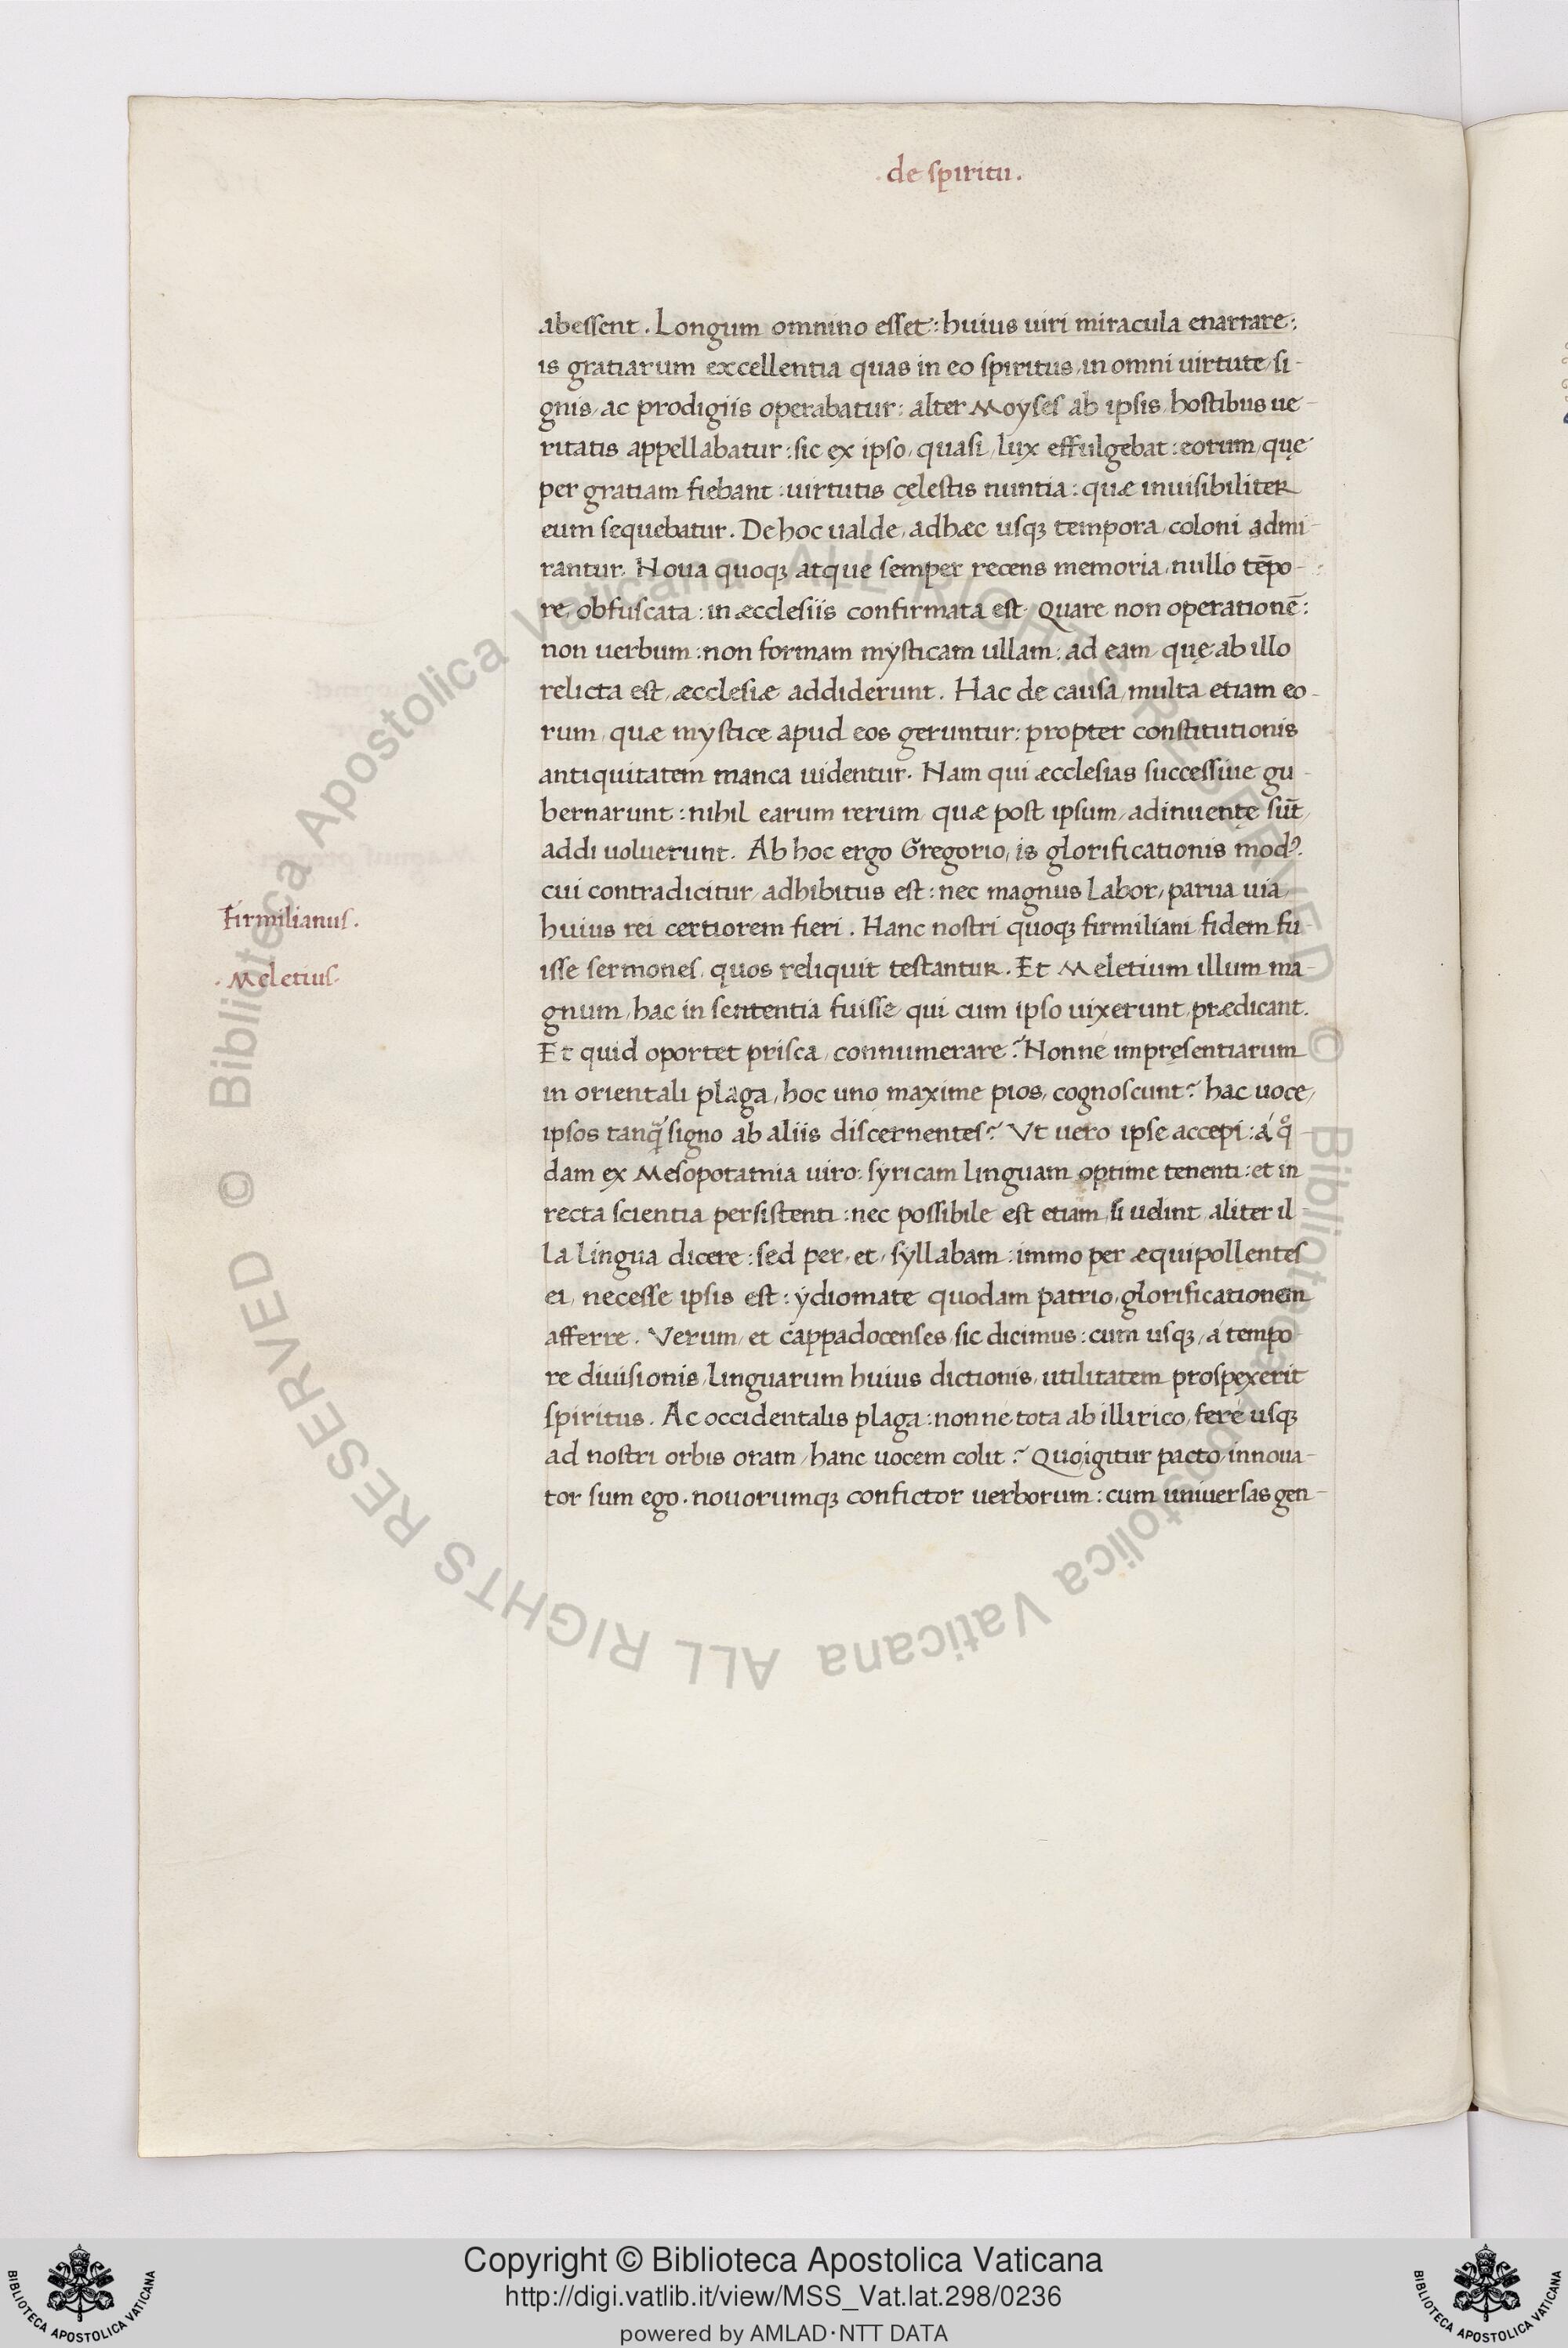 . de spiritu .
abessent . Longum omnino esset : huius uiri miracula enarrare :
is gratiarum excellentia quas in eo spiritus , in omni uirtute , si-
gnis , ac prodigiis operabatur : alter Moyses ab ipsis , hostibus ue-
ritatis appellabatur : sic ex ipso , quasi , lux effulgebat : eorum , quę
per gratiam fiebant : uirtutis cęlestis nuntia : quæ inuisibiliter
eum sequebatur . De hoc ualde , adhæc usqꝫ tempora , coloni admi-
rantur . Noua quoqꝫ atque semper recens memoria , nullo tēpo-
re , obfuscata : in æcclesiis confirmata est . Quare non operationē :
non uerbum : non formam mysticam ullam : ad eam quę ab illo
relicta est , æcclesiæ addiderunt . Hac de causa , multa etiam eo-
rum , quæ mystice apud eos geruntur : propter constitutionis
antiquitatem manca uidentur . Nam qui æcclesias successiue gu-
bernarunt : nihil earum rerum , quæ post ipsum , adinuentę sūt ,
addi uoluerunt . Ab hoc ergo Gregorio , is glorificationis modꝰ .
cui contradicitur , adhibitus est : nec magnus labor , parua uia ,
huius rei certiorem fieri . Hanc nostri quoqꝫ firmiliani fidem fu-
Firmilianus .
isse sermones , quos reliquit testantur . Et Meletium illum ma-
. Meletius .
gnum , hac in sententia fuisse qui cum ipso uixerunt , prædicant .
Et quid oportet prisca , connumerare ? Nonne impręsentiarum
in orientali plaga , hoc uno maxime pios , cognoscunt ? hac uoce ,
ipsos tanq̄ signo ab aliis discernentes ? Vt uero ipse accepi : á qͦ-
dam ex Mesopotamia uiro : syricam linguam optime tenenti : et in
recta scientia persistenti : nec possibile est etiam , si uelint , aliter il-
la lingua dicere : sed per , et , syllabam : immo per æquipollentes
ei , necesse ipsis est : ydiomate quodam patrio , glorificationem
afferre . Verum , et cappadocenses , sic dicimus : cum usqꝫ , á tempo-
re diuisionis , linguarum huius dictionis , utilitatem prospexerit
spiritus . Ac occidentalis plaga : nonne tota ab illirico , fere usqꝫ
ad nostri orbis oram , hanc uocem colit ? Quo igitur pacto , innoua-
tor sum ego . nouorumqꝫ confictor uerborum : cum uniuersas gen-
© Biblioteca Apostolica Vaticana ALL RIGHTS RESERVED
© Biblioteca Apostolica Vaticana ALL RIGHTS RESERVED
Copyright © Biblioteca Apostolica Vaticana
http://digi.vatlib.it/view/MSS_Vat.lat.298/0236
powered by AMLAD·NTT DATA
BIBLIOTECA APOSTOLICA VATICANA
BIBLIOTECA APOSTOLICA VATICANA